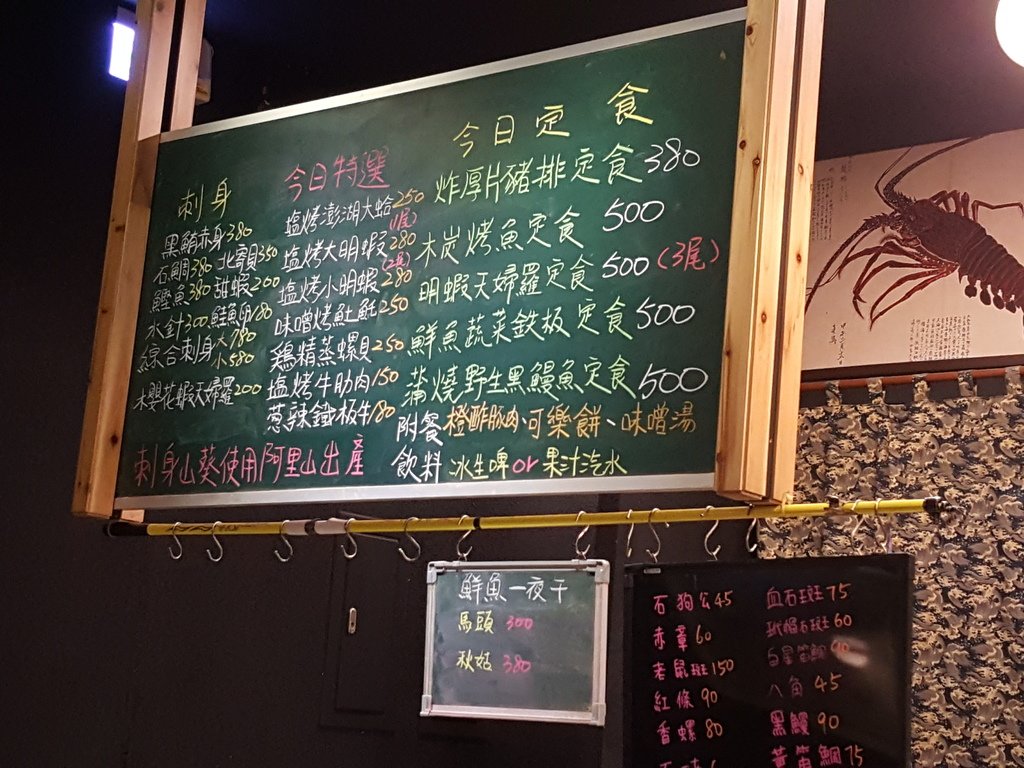 刺身
黑鮪赤身380
石鯛380 北寄貝350
鰹魚380 甜蝦260
水針300 鮭魚卵180
綜合刺身大780
小580
木櫻花蝦天婦羅200
今日特選
塩烤澎湖大蛤250
塩烤大明蝦280
塩烤小明蝦280
味噌烤魟魠250
鶏精蒸螺貝250
塩烤牛肋肉150
葱辣鐵板牛180
刺身山葵使用阿里山出產
今日定食
炸厚片豬排定食380
木炭烤魚定食500
明蝦天婦羅定食500(3尾)
鮮魚蔬菜鉄板定食500
蒲燒野生黑鰻魚定食500
附餐橙酢豚肉、可樂餅、味噌湯
飲料 冰生啤or果汁汽水
鮮魚一夜干
馬頭 300
秋姑 380
石狗公45
赤章60
老鼠斑150
紅條90
香螺80
血石斑75
玳瑁石斑60
白星笛鯛90
八角45
黑鰻90
黃笛鯛75